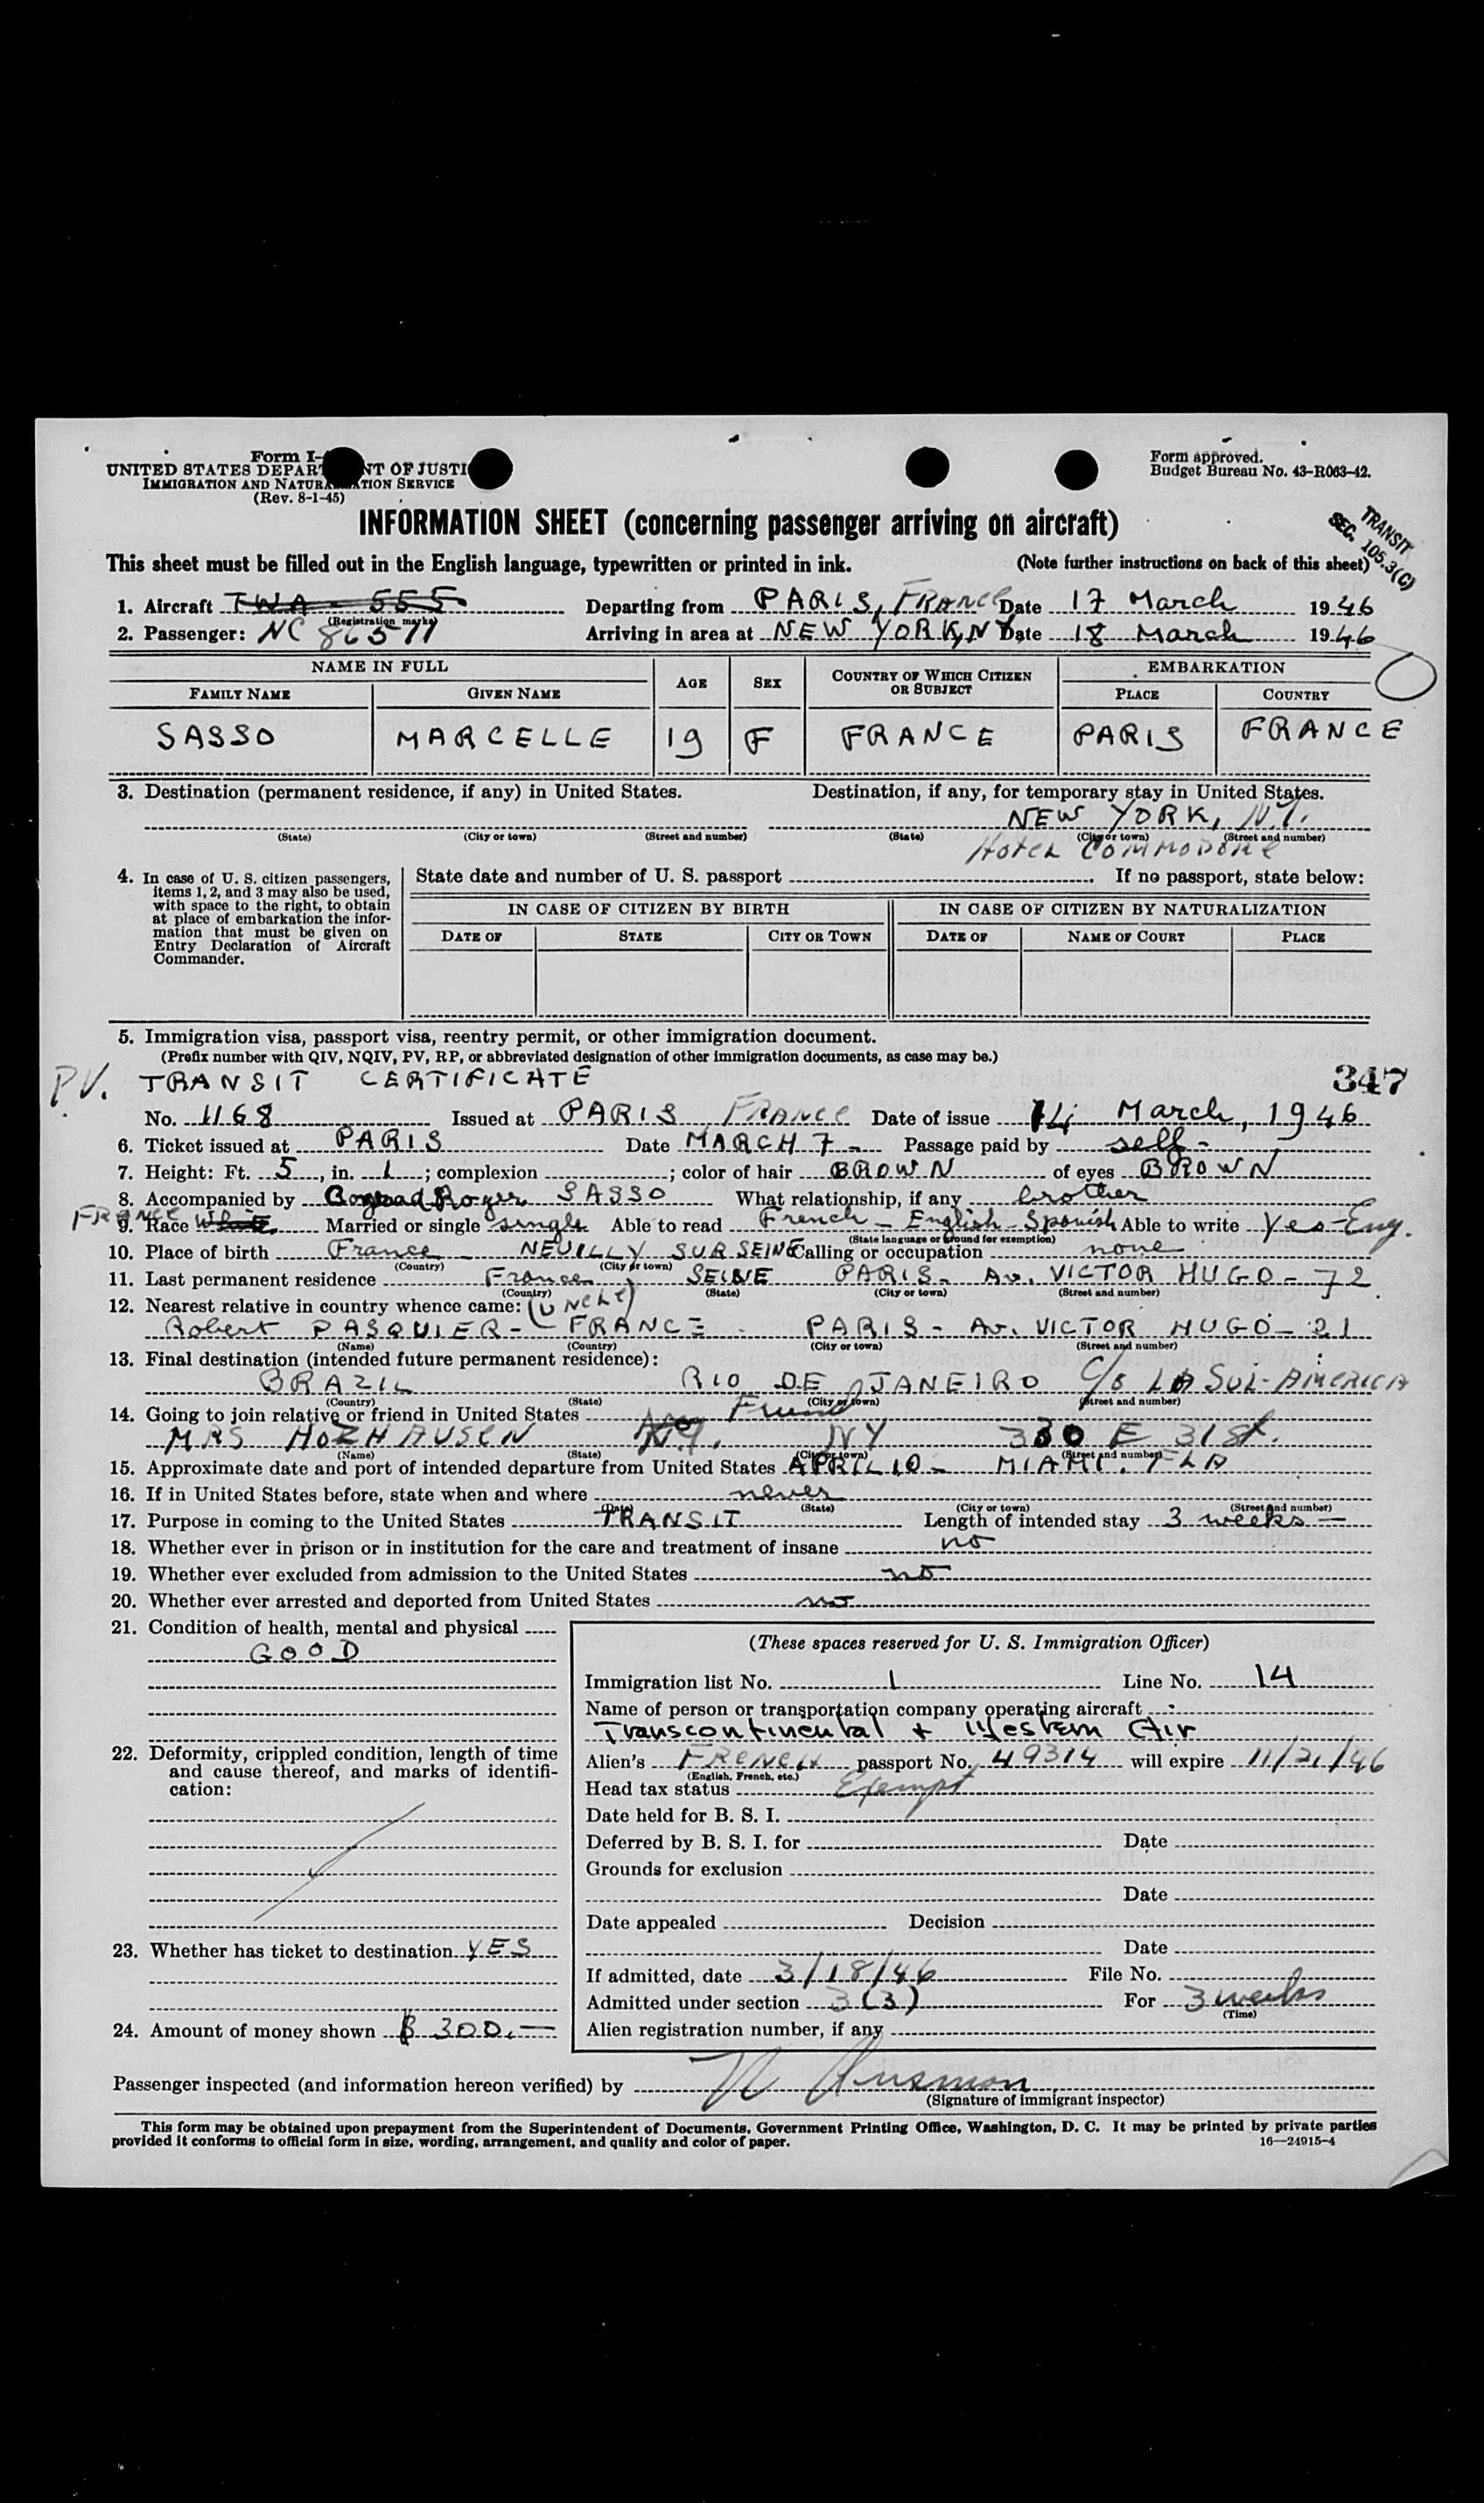 Form I-
UNITED STATES DEPARTMENT OF JUSTICE
IMMIGRATION AND NATURALIZATION SERVICE
(Rev. 8-1-45)
Form approved.
Budget Bureau No. 43-R063-42.
INFORMATION SHEET (concerning passenger arriving on aircraft)
TRANSIT
SEC. 105.3(C)
This sheet must be filled out in the English language, typewritten or printed in ink. (Note further instructions on back of this sheet)
1. Aircraft TWA - 555 Departing from PARIS, FRANCE Date 17 March 1946
(Registration marks)
2. Passenger: NC 86511 Arriving in area at NEW YORK, N.Y. Date 18 March 1946
NAME IN FULL AGE SEX COUNTRY OF WHICH CITIZEN OR SUBJECT EMBARKATION
FAMILY NAME GIVEN NAME PLACE COUNTRY
SASSO MARCELLE 19 F FRANCE PARIS FRANCE
3. Destination (permanent residence, if any) in United States. Destination, if any, for temporary stay in United States.
NEW YORK, N.Y.
(State) (City or town) (Street and number) (State) (City or town) (Street and number)
HOTEL COMMODORE
4. In case of U. S. citizen passengers, items 1, 2, and 3 may also be used, with space to the right, to obtain at place of embarkation the information that must be given on Entry Declaration of Aircraft Commander.
State date and number of U. S. passport If no passport, state below:
IN CASE OF CITIZEN BY BIRTH IN CASE OF CITIZEN BY NATURALIZATION
DATE OF STATE CITY OR TOWN DATE OF NAME OF COURT PLACE
5. Immigration visa, passport visa, reentry permit, or other immigration document.
(Prefix number with QIV, NQIV, PV, RP, or abbreviated designation of other immigration documents, as case may be.)
P.V. TRANSIT CERTIFICATE 347
No. 1168 Issued at PARIS, FRANCE Date of issue 14 March, 1946
6. Ticket issued at PARIS Date MARCH 7 - Passage paid by self -
7. Height: Ft. 5, in. 1; complexion ; color of hair BROWN of eyes BROWN
8. Accompanied by Roger SASSO What relationship, if any brother
FRENCH
9. Race White Married or single single Able to read French - English - Spanish Able to write Yes - Eng.
(State language or ground for exemption)
10. Place of birth France NEUILLY SUR SEINE Calling or occupation none
(Country) (City or town)
11. Last permanent residence France SEINE PARIS - Av. VICTOR HUGO - 72
(Country) (State) (City or town) (Street and number)
12. Nearest relative in country whence came: (UNCLE)
Robert PASQUIER - FRANCE PARIS - Av. VICTOR HUGO - 21
(Name) (Country) (City or town) (Street and number)
13. Final destination (intended future permanent residence):
BRAZIL RIO DE JANEIRO C/o LA SUL-AMERICA
(Country) (State) (City or town) (Street and number)
14. Going to join relative or friend in United States Friend
MRS HOZHAUSEN N.Y. NY 330 E 31 St.
(Name) (State) (City or town) (Street and number)
15. Approximate date and port of intended departure from United States APRIL 10 - MIAMI. FLA
16. If in United States before, state when and where never
(Date) (State) (City or town) (Street and number)
17. Purpose in coming to the United States TRANSIT Length of intended stay 3 weeks -
18. Whether ever in prison or in institution for the care and treatment of insane no
19. Whether ever excluded from admission to the United States no
20. Whether ever arrested and deported from United States no
21. Condition of health, mental and physical
GOOD
22. Deformity, crippled condition, length of time and cause thereof, and marks of identification:
23. Whether has ticket to destination YES
24. Amount of money shown $ 300.-
(These spaces reserved for U. S. Immigration Officer)
Immigration list No. 1 Line No. 14
Name of person or transportation company operating aircraft
Transcontinental + Western Air
Alien's FRENCH passport No. 49314 will expire 11/21/46
(English, French, etc.)
Head tax status Exempt
Date held for B. S. I.
Deferred by B. S. I. for Date
Grounds for exclusion
Date
Date appealed Decision
Date
If admitted, date 3/18/46 File No.
Admitted under section 3(3) For 3 weeks
(Time)
Alien registration number, if any
Passenger inspected (and information hereon verified) by
(Signature of immigrant inspector)
This form may be obtained upon prepayment from the Superintendent of Documents, Government Printing Office, Washington, D. C. It may be printed by private parties
provided it conforms to official form in size, wording, arrangement, and quality and color of paper.
16—24915-4